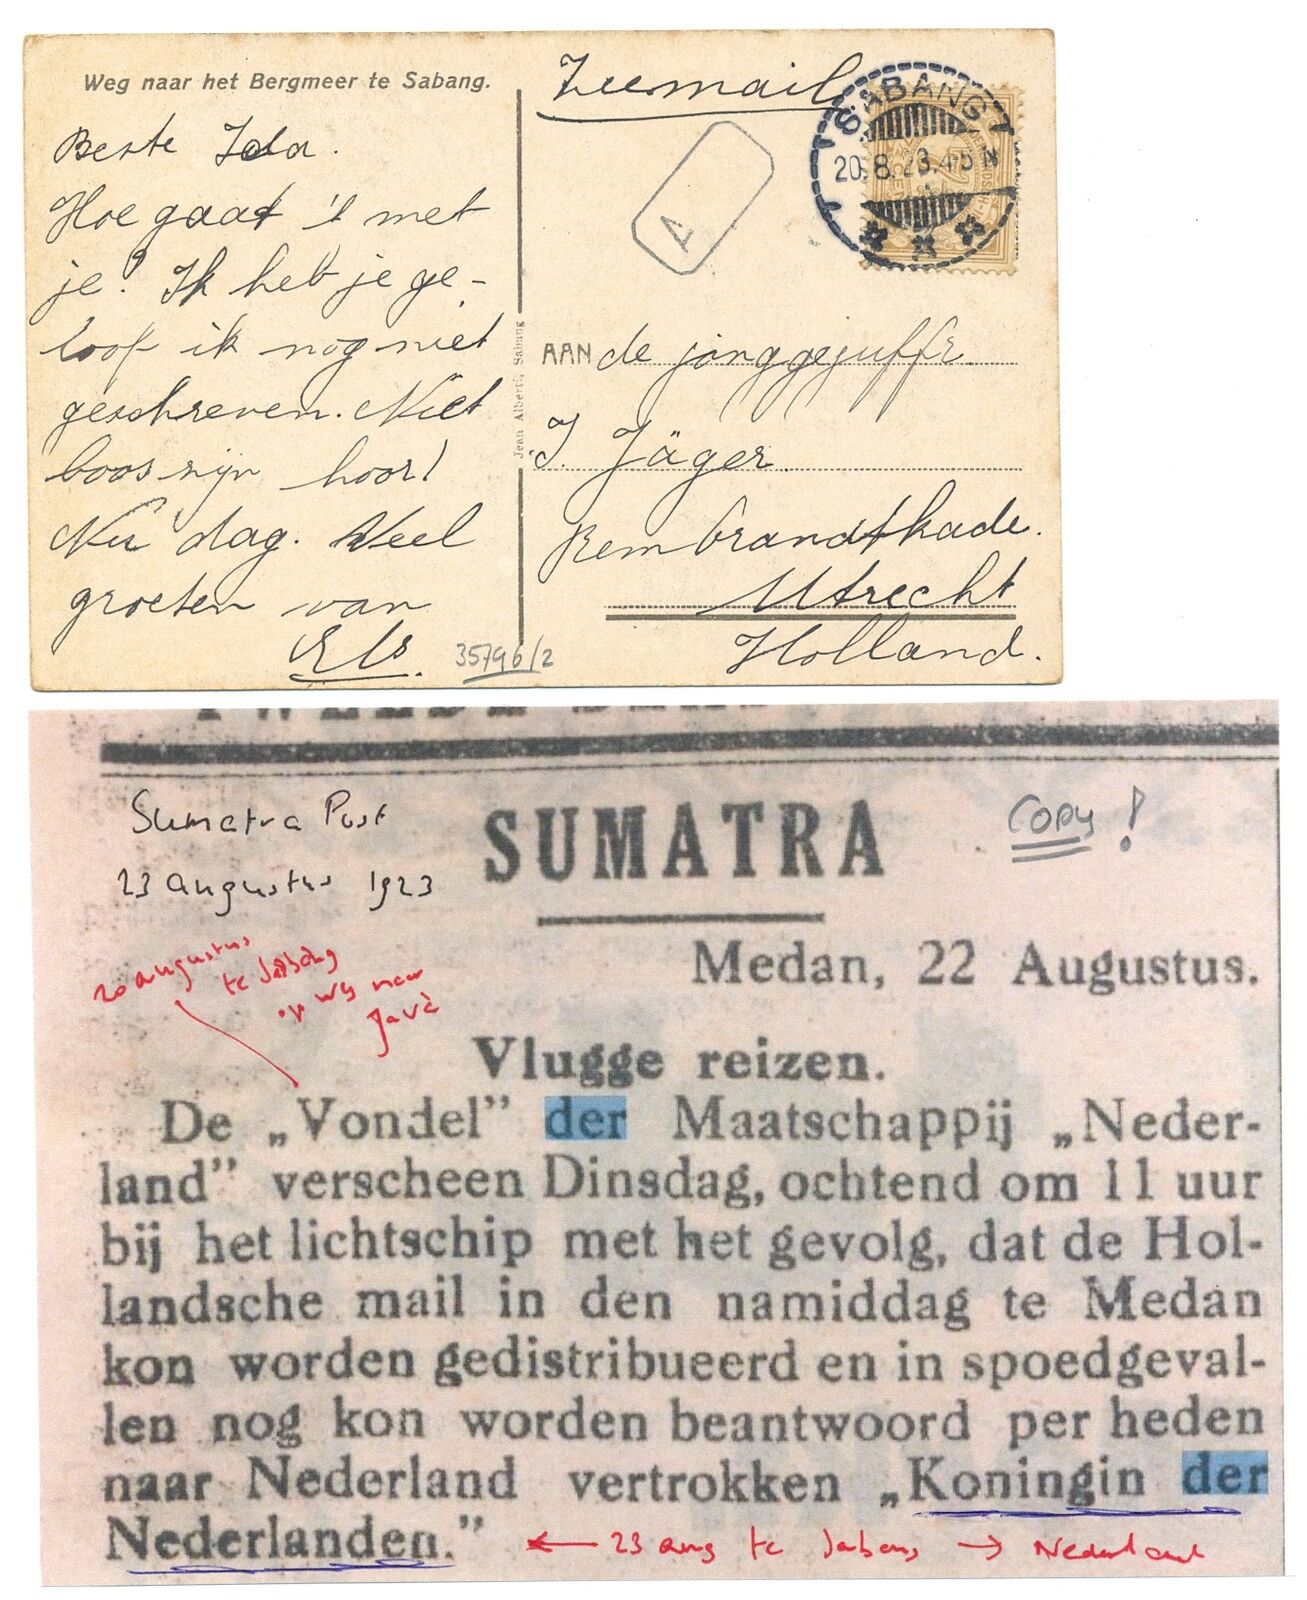 Weg naar het Bergmeer te Sabang.
Beste Ida.
Hoe gaat 't met
je? Ik heb je ge-
loof ik nog niet
geschreven. Niet
boos zijn hoor!
Nu dag. Veel
groeten van
Els.
35796/2
Jean Alberti, Sabang
Zeemail
SABANG
20.8.23.4-5N
A
AAN de jonggejuffr.
I. Jäger.
Rembrandtkade.
Utrecht
Holland.
Sumatra Post
23 augustus 1923
SUMATRA
Copy!
Medan, 22 Augustus.
20 augustus
te Sabang
op weg naar
Java
Vlugge reizen.
De „Vondel” der Maatschappij „Neder-
land” verscheen Dinsdag, ochtend om 11 uur
bij het lichtschip met het gevolg, dat de Hol-
landsche mail in den namiddag te Medan
kon worden gedistribueerd en in spoedgeval-
len nog kon worden beantwoord per heden
naar Nederland vertrokken „Koningin der
Nederlanden.”
← 23 aug te Sabang → Nederland